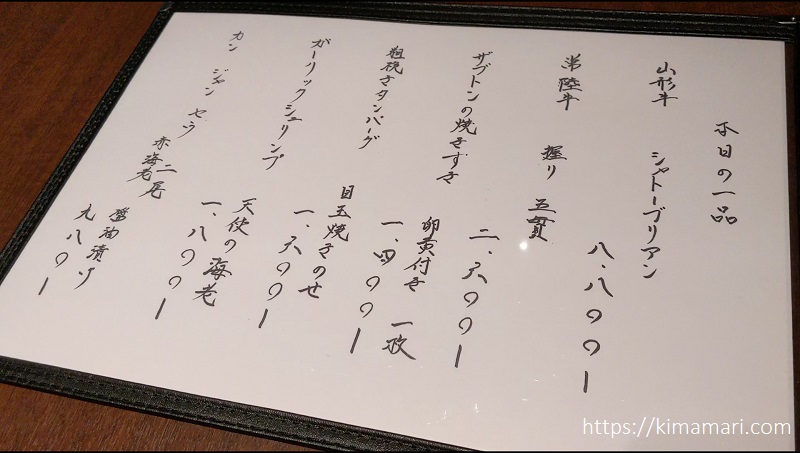 本日の一品
山形牛 シャトーブリアン
八.八〇〇ー
常陸牛 握り 五貫
二.六〇〇ー
ザブトンの焼きすき
卵黄付き 一枚
一.四〇〇ー
粗挽きタンバーグ
目玉焼きのせ
一.六〇〇ー
ガーリックシュリンプ
天使の海老
一.八〇〇ー
カンジャンセウ
赤海老 二尾
醤油漬け
九八〇ー
https://kimamari.com